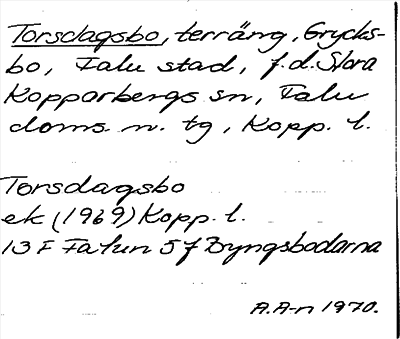 Torsdagsbo, terräng, Grycks-
bo, Falu stad, f.d. Stora
Kopparbergs sn, Falu
doms. n. tg, Kopp. l.
Torsdagsbo
ek (1969) Kopp. l.
13 F Falun 5 f Byngsbodarna
A.A-n 1970.